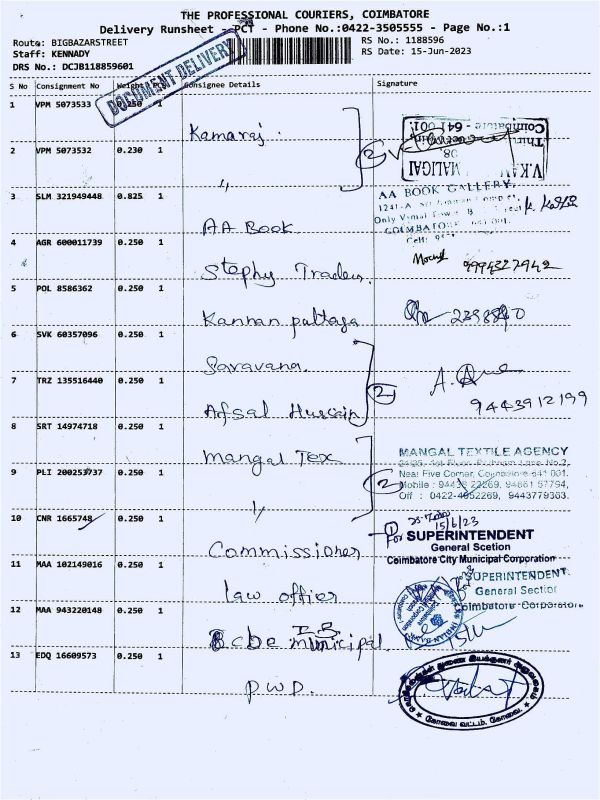 THE PROFESSIONAL COURIERS, COIMBATORE
Delivery Runsheet - PCT - Phone No.:0422-3505555 - Page No.:1
Route: BIGBAZARSTREET
RS No.: 1188596
Staff: KENNADY
RS Date: 15-Jun-2023
DRS No.: DCJB118859601
DOCUMENT DELIVERY
S No Consignment No Weight Pcs Consignee Details Signature
1 VPM 5073533 0.250 1 Kamaraj
2 VPM 5073532 0.230 1 "
2
V.KA MALIGAI
Coimbatore - 641 001.
3 SLM 321949448 0.825 1 AA Book
AA BOOK GALLERY,
4 AGR 600011739 0.250 1 Stephy Traders
9994327942
5 POL 8586362 0.250 1 Kannan pattaga
6 SVK 60357096 0.250 1 Saravana
7 TRZ 135516440 0.250 1 Afsal Hussain
2
9443912199
8 SRT 14974718 0.250 1 Mangal Tex
MANGAL TEXTILE AGENCY
Near Five Corner, Coimbatore 641 001.
9 PLI 200253737 0.250 1 "
2
Off : 0422-4952269, 9443779363.
10 CNR 1665748 0.250 1 Commissioner
1
15/6/23
For SUPERINTENDENT
General Scetion
Coimbatore City Municipal Corporation
11 MAA 102149016 0.250 1 Law officer
SUPERINTENDENT
General Section
Coimbatore Corporation
12 MAA 943220148 0.250 1 municipal
13 EDQ 16609573 0.250 1 PWD.
கோவை வட்டம், கோவை.